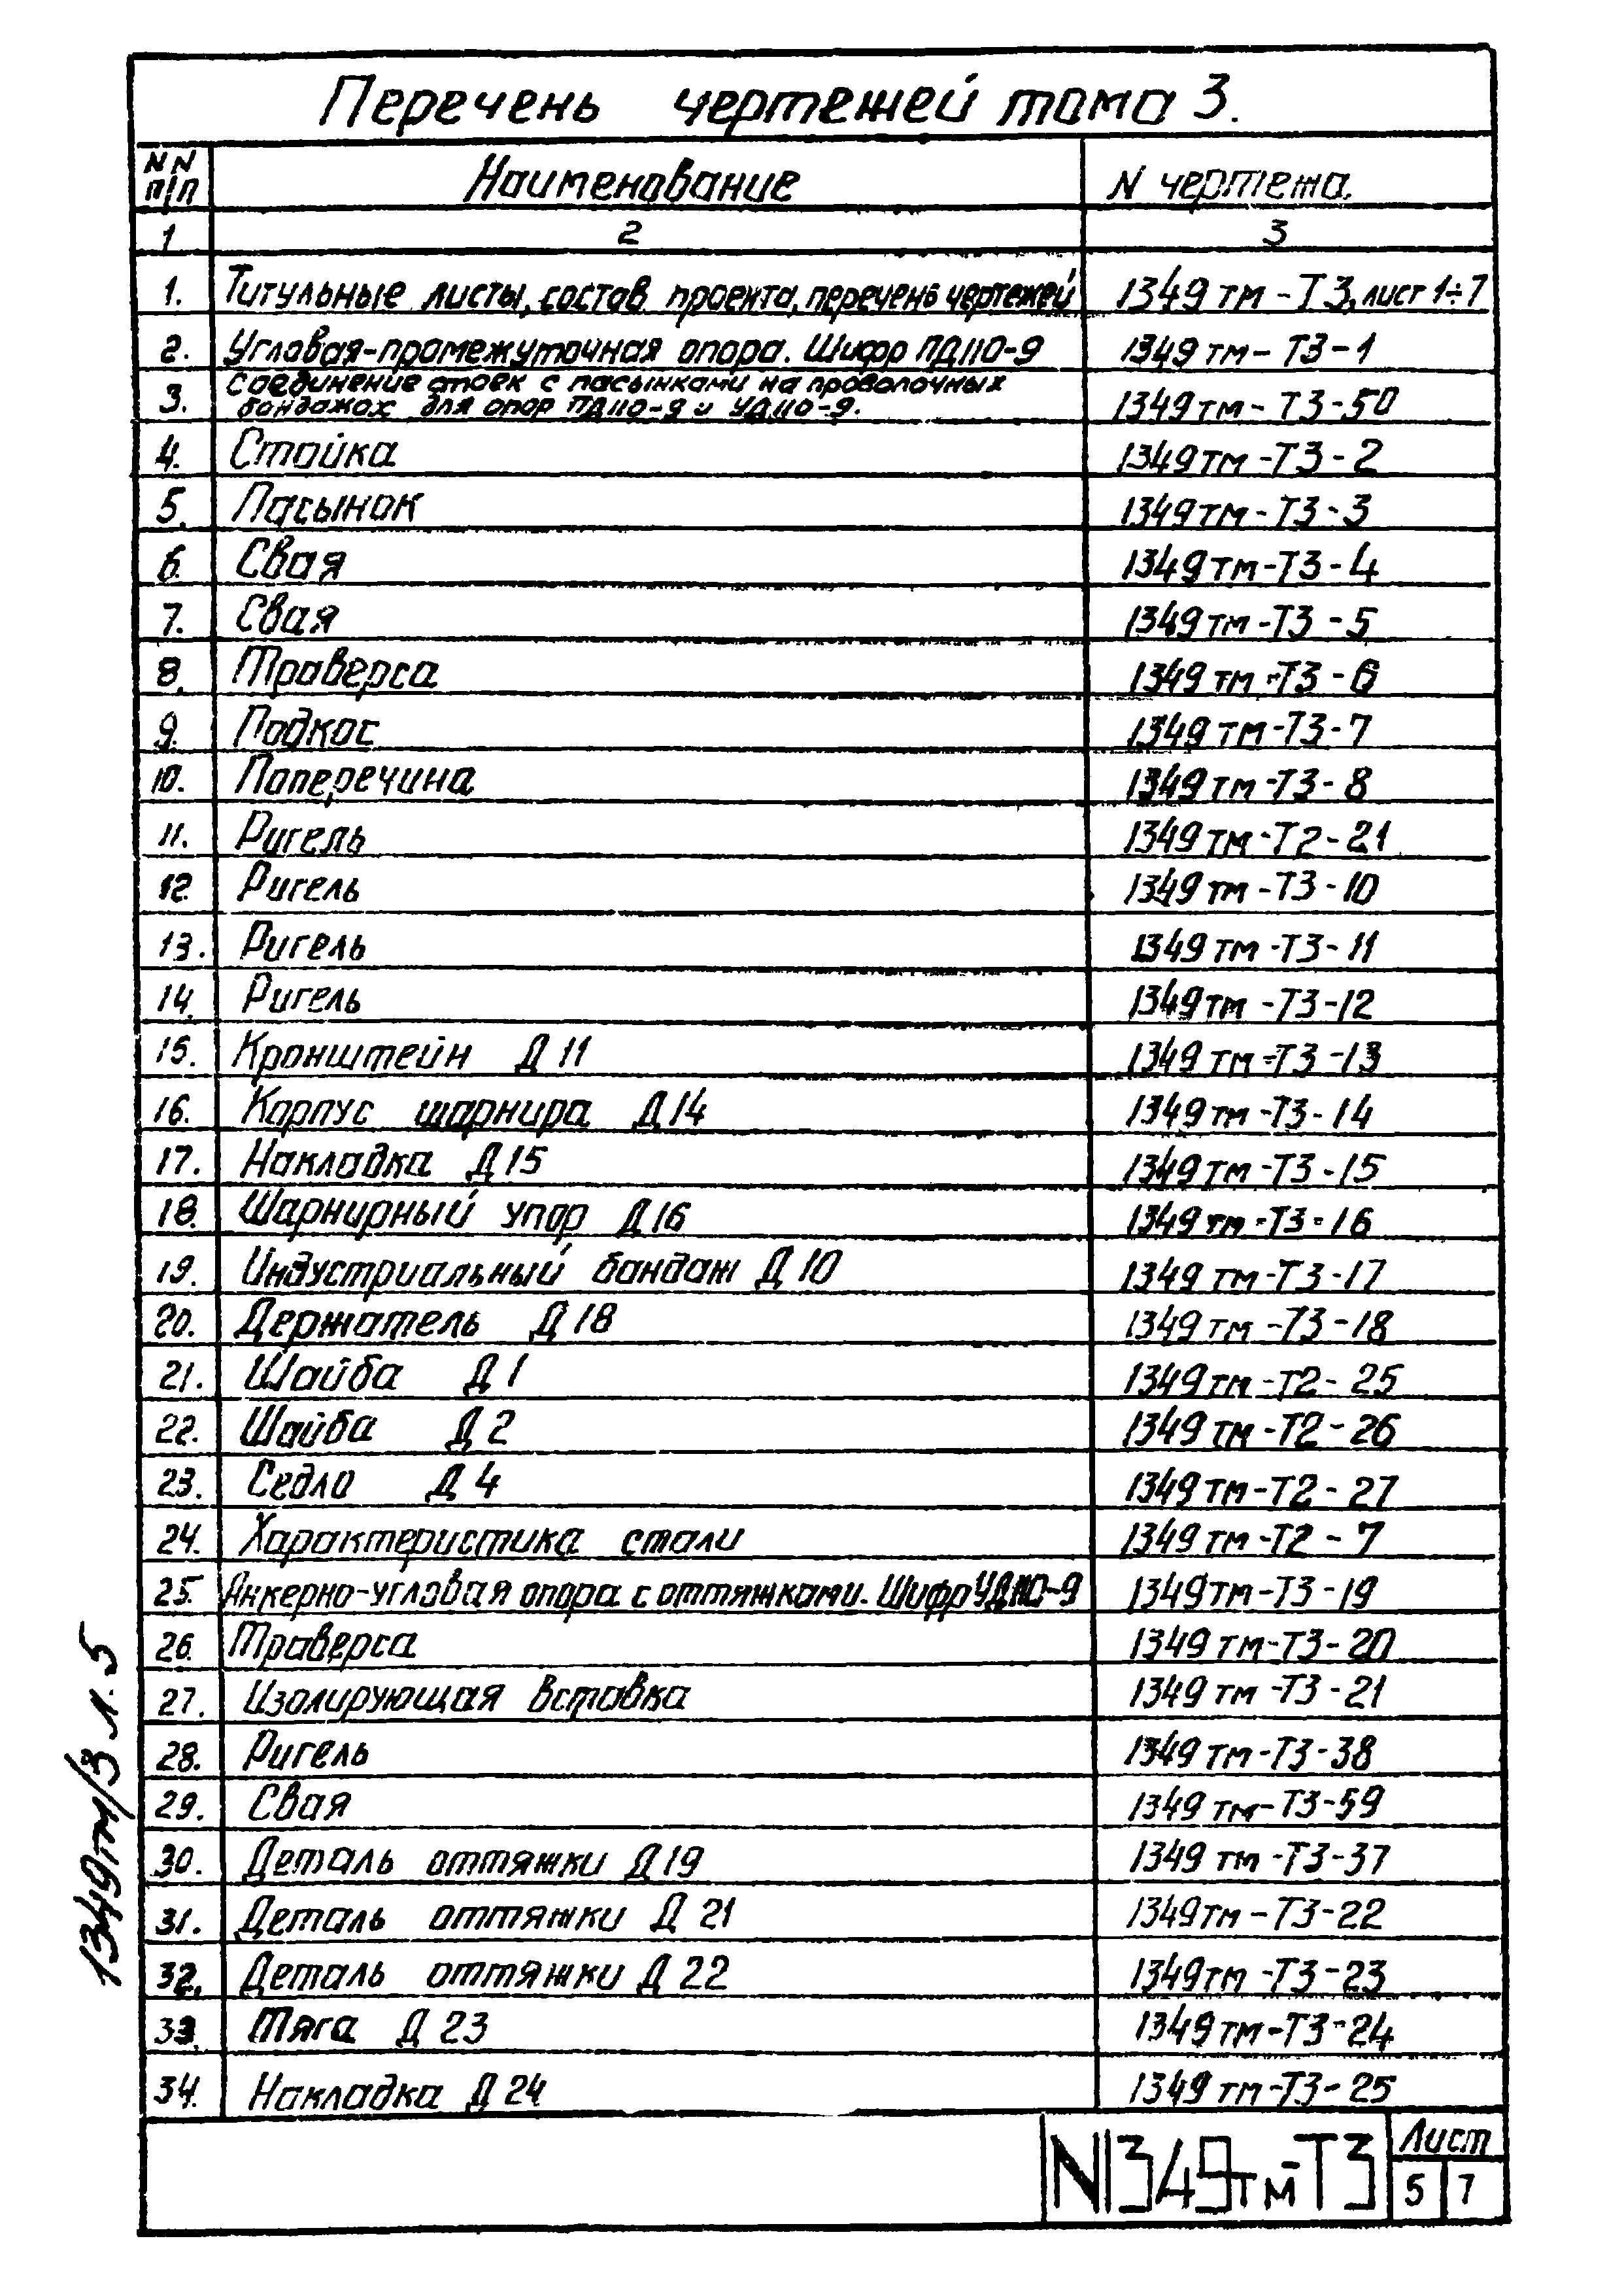 Перечень чертежей тома 3.
NN п/п Наименование N чертежа.
1 2 3
1. Титульные листы, состав проекта, перечень чертежей 1349тм-Т3, лист 1÷7
2. Угловая-промежуточная опора. Шифр ПД110-9 1349тм-Т3-1
3. Соединение стоек с пасынками на проволочных
бандажах для опор ПД110-9 и УД110-9. 1349тм-Т3-50
4. Стойка 1349тм-Т3-2
5. Пасынок 1349тм-Т3-3
6. Свая 1349тм-Т3-4
7. Свая 1349тм-Т3-5
8. Траверса 1349тм-Т3-6
9. Подкос 1349тм-Т3-7
10. Поперечина 1349тм-Т3-8
11. Ригель 1349тм-Т2-21
12. Ригель 1349тм-Т3-10
13. Ригель 1349тм-Т3-11
14. Ригель 1349тм-Т3-12
15. Кронштейн Д11 1349тм-Т3-13
16. Корпус шарнира Д14 1349тм-Т3-14
17. Накладка Д15 1349тм-Т3-15
18. Шарнирный упор Д16 1349тм-Т3-16
19. Индустриальный бандаж Д10 1349тм-Т3-17
20. Держатель Д18 1349тм-Т3-18
21. Шайба Д1 1349тм-Т2-25
22. Шайба Д2 1349тм-Т2-26
23. Седло Д4 1349тм-Т2-27
24. Характеристика стали 1349тм-Т2-7
25. Анкерно-угловая опора с оттяжками. Шифр УД110-9 1349тм-Т3-19
26. Траверса 1349тм-Т3-20
27. Изолирующая вставка 1349тм-Т3-21
28. Ригель 1349тм-Т3-38
29. Свая 1349тм-Т3-59
30. Деталь оттяжки Д19 1349тм-Т3-37
31. Деталь оттяжки Д21 1349тм-Т3-22
32. Деталь оттяжки Д22 1349тм-Т3-23
33. Тяга Д23 1349тм-Т3-24
34. Накладка Д24 1349тм-Т3-25
1349тм/3 л.5
N1349тм-Т3 Лист
5 7